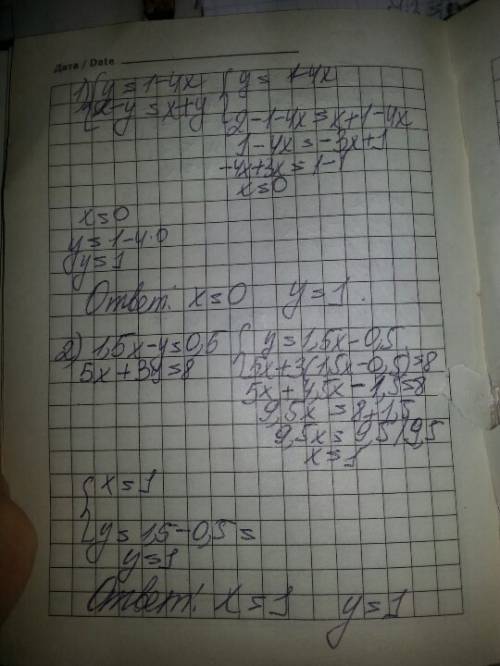 Дата / Date
1) { y = 1-4x
2-y = x+y
{ y = 1-4x
2-1-4x = x+1-4x
1-4x = -3x+1
-4x+3x = 1-1
x=0
x=0
y=1-4·0
y=1
Ответ: x=0 y=1.
2) 1,5x-y=0,5
5x+3y=8
{ y=1,5x-0,5
5x+3(1,5x-0,5)=8
5x+4,5x-1,5=8
9,5x = 8+1,5
9,5x = 9,5 /9,5
x=1
{ x=1
y=1,5-0,5=
y=1
Ответ: x=1 y=1